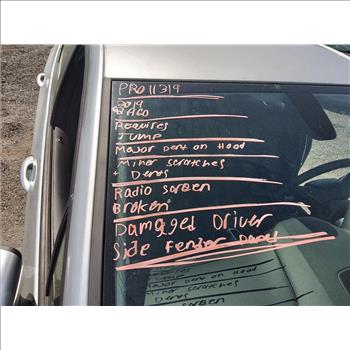 PRO11319
2019
Requires
Jump
Major Dent on Hood
Minor Scratches
+ Dents
Radio screen
Broken
Damaged Driver
Side Fender Panel
Major Dent on Hood
Minor Scratches
Dents
screen